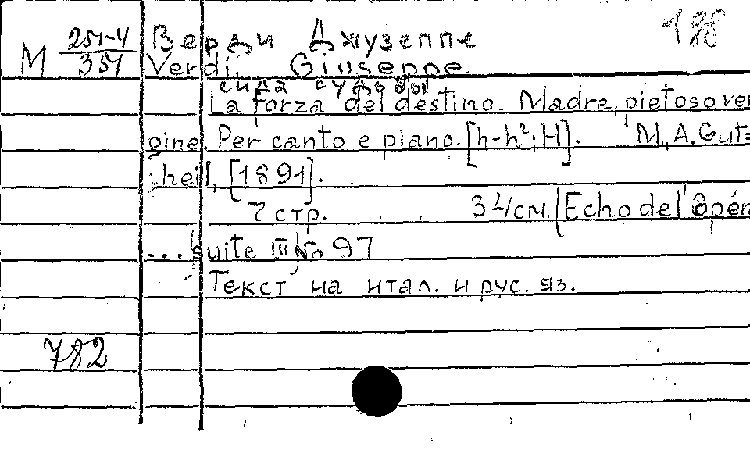 198
M 251-4/351 Верди Джузеппе
Verdi Giuseppe
сила судьбы
La forza del destino. Madre, pietoso ver
gine. Per canto e piano. [h-h²; H]. M., A. Gut-
heil, [1891].
7 стр. 34 см. (Echo de l'opér
... suite III № 97
Текст на итал. и рус. яз.
782